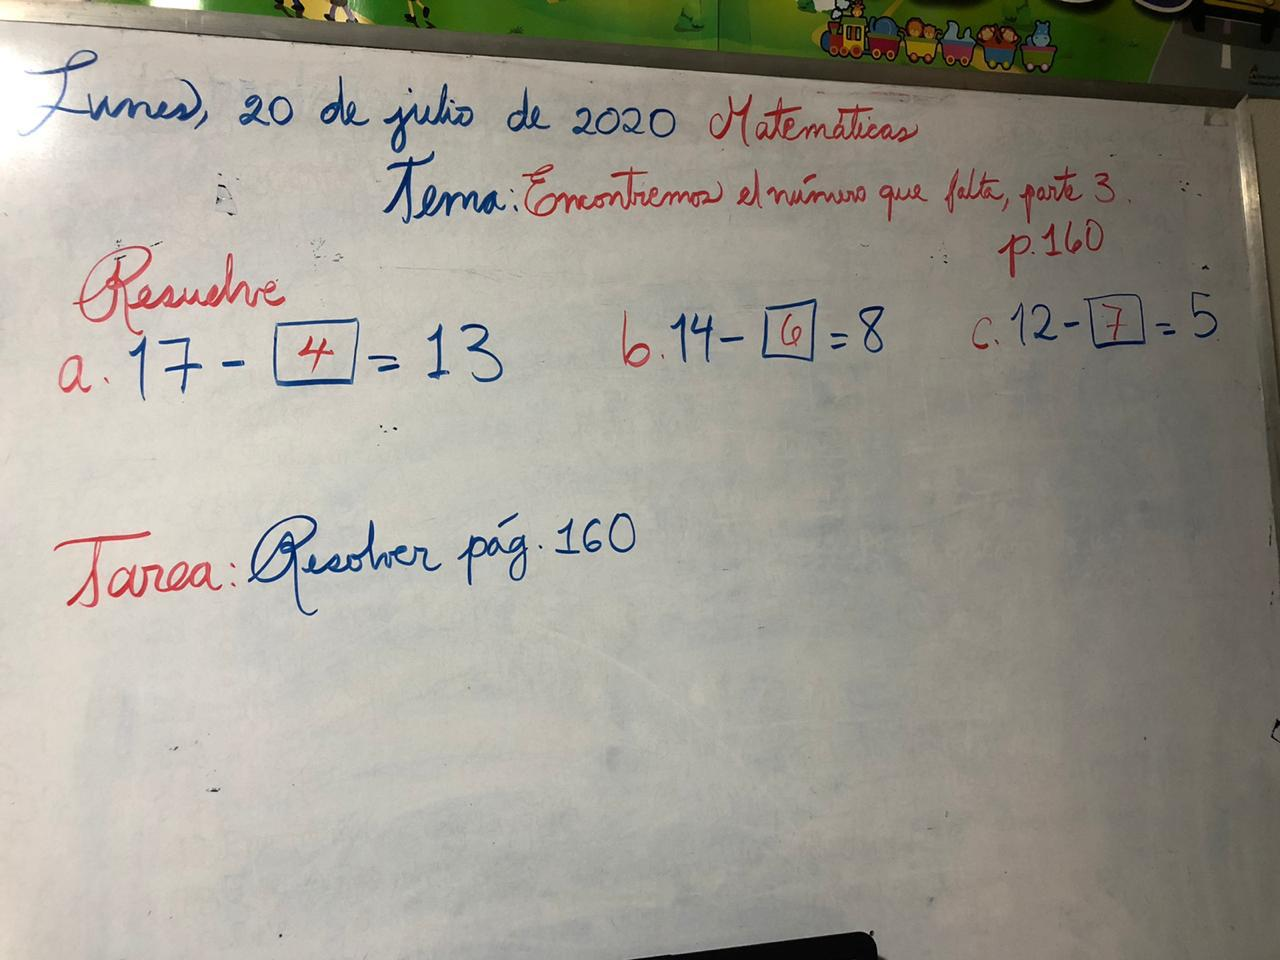 Lunes, 20 de julio de 2020 Matemáticas
Tema: Encontremos el número que falta, parte 3.
p.160
Resuelve
a. 17 - 4 = 13 b. 14 - 6 = 8 c. 12 - 7 = 5
Tarea: Resolver pág. 160